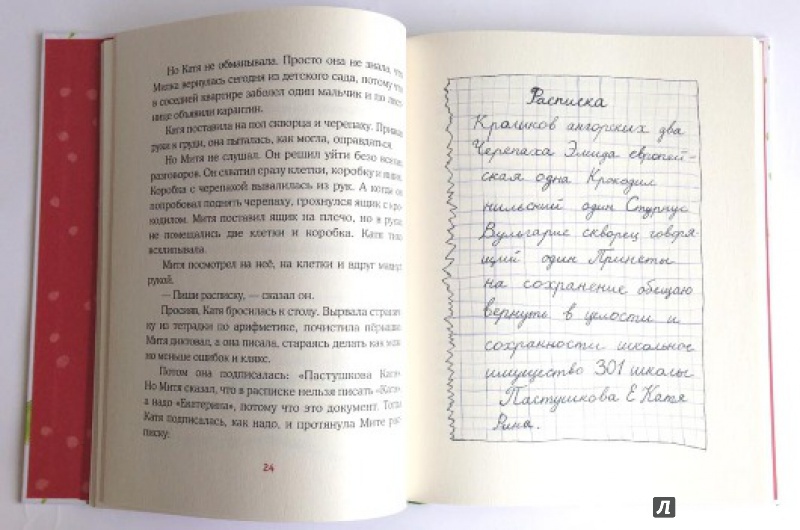 Но Катя не обманывала. Просто она не знала, что
Милка вернулась сегодня из детского сада, потому что
в соседней квартире заболел один мальчик и по лест-
нице объявили карантин.
Катя поставила на пол скворца и черепаху. Прижав
руки к груди, она пыталась, как могла, оправдаться.
Но Митя не слушал. Он решил уйти безо всяких
разговоров. Он схватил сразу клетки, коробку и ящик.
Коробка с черепахой вывалилась из рук. А когда он
попробовал поднять черепаху, грохнулся ящик с кро-
кодилом. Митя поставил ящик на плечо, но в руках
не помещались две клетки и коробка. Катя тихо
всхлипывала.
Митя посмотрел на неё, на клетки и вдруг махнул
рукой.
— Пиши расписку, — сказал он.
Просияв, Катя бросилась к столу. Вырвала страни-
ку из тетрадки по арифметике, почистила пёрышко.
Митя диктовал, а она писала, стараясь делать как мож-
но меньше ошибок и клякс.
Потом она подписалась: «Пастушкова Катя».
Но Митя сказал, что в расписке нельзя писать «Катя»,
а надо «Екатерина», потому что это документ. Тогда
Катя подписалась, как надо, и протянула Мите рас-
писку:
24
Расписка
Кроликов ангорских два
Черепаха Эмида европей-
ская одна Крокодил
нильский один Стурнус
Вульгарис скворец говоря-
щий один Приняты
на сохранение обещаю
вернуть в целости и
сохранности школьное
имущество 301 школы
Пастушкова Е Катя
Рина.
Л